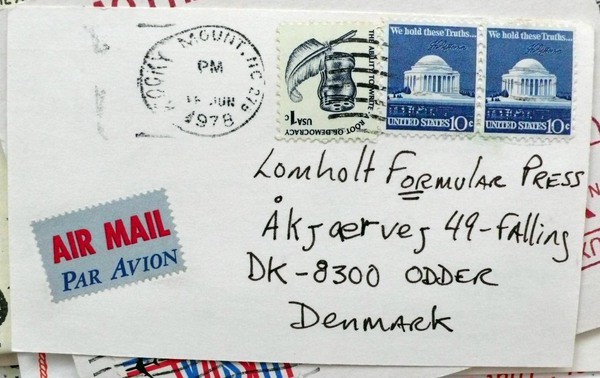 ROCKY MOUNT, NC 278
PM
15 JUN
1978
THE ABILITY TO WRITE
A ROOT OF DEMOCRACY
USA 1c
We hold these Truths...
UNITED STATES 10c
We hold these Truths...
UNITED STATES 10c
Lomholt FORMULAR PRESS
Åkjærvej 49-Falling
DK-8300 ODDER
DENMARK
AIR MAIL
PAR AVION